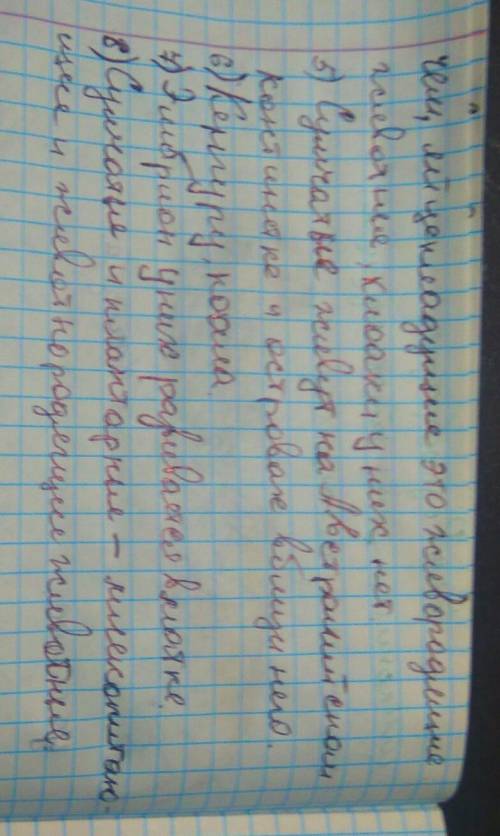 чем, яйцекладущие это живородящие
животные, клоаки у них нет.
5) Сумчатые живут на Австралийском
континенте и островах вблизи него.
6) Кенгуру, коала.
7) Эмбрион у них развивается в матке.
8) Сумчатые и плацентарные – млекопитаю-
щие и живородящие животные.